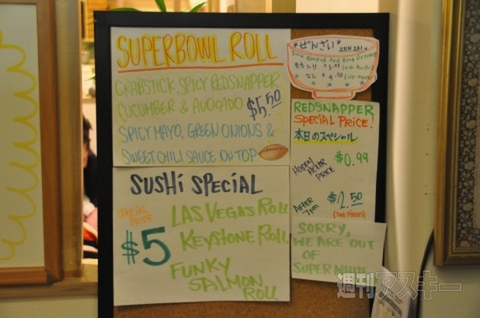 SUPERBOWL ROLL
CRABSTICK, SPICY REDSNAPPER
CUCUMBER & AVOCADO $5.50
SPICY MAYO, GREEN ONIONS &
SWEET CHILI SAUCE ON TOP
SUSHI SPECIAL
SPECIAL PRICE
$5
LAS VEGAS ROLL
KEYSTONE ROLL
FUNKY
SALMON
ROLL
*ぜんざい*
REDSNAPPER
SPECIAL PRICE!
本日のスペシャル
HAPPY HOUR
PRICE
$0.99
AFTER
7PM
$2.50
(TWO PIECES)
SORRY,
WE ARE OUT
OF
週刊アスキー